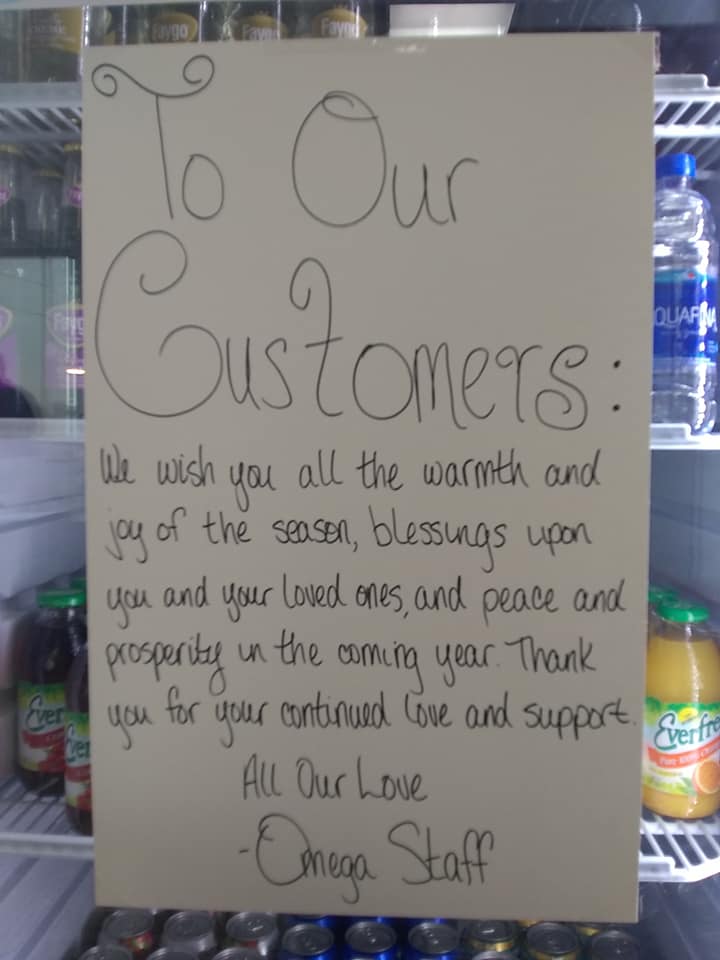 Faygo
Faygo
Faygo
To Our
Customers:
We wish you all the warmth and
joy of the season, blessings upon
you and your loved ones, and peace and
prosperity in the coming year. Thank
you for your continued love and support.
All Our Love
-Omega Staff
QUAFINA
Faygo
Ever
Ever
Everfre